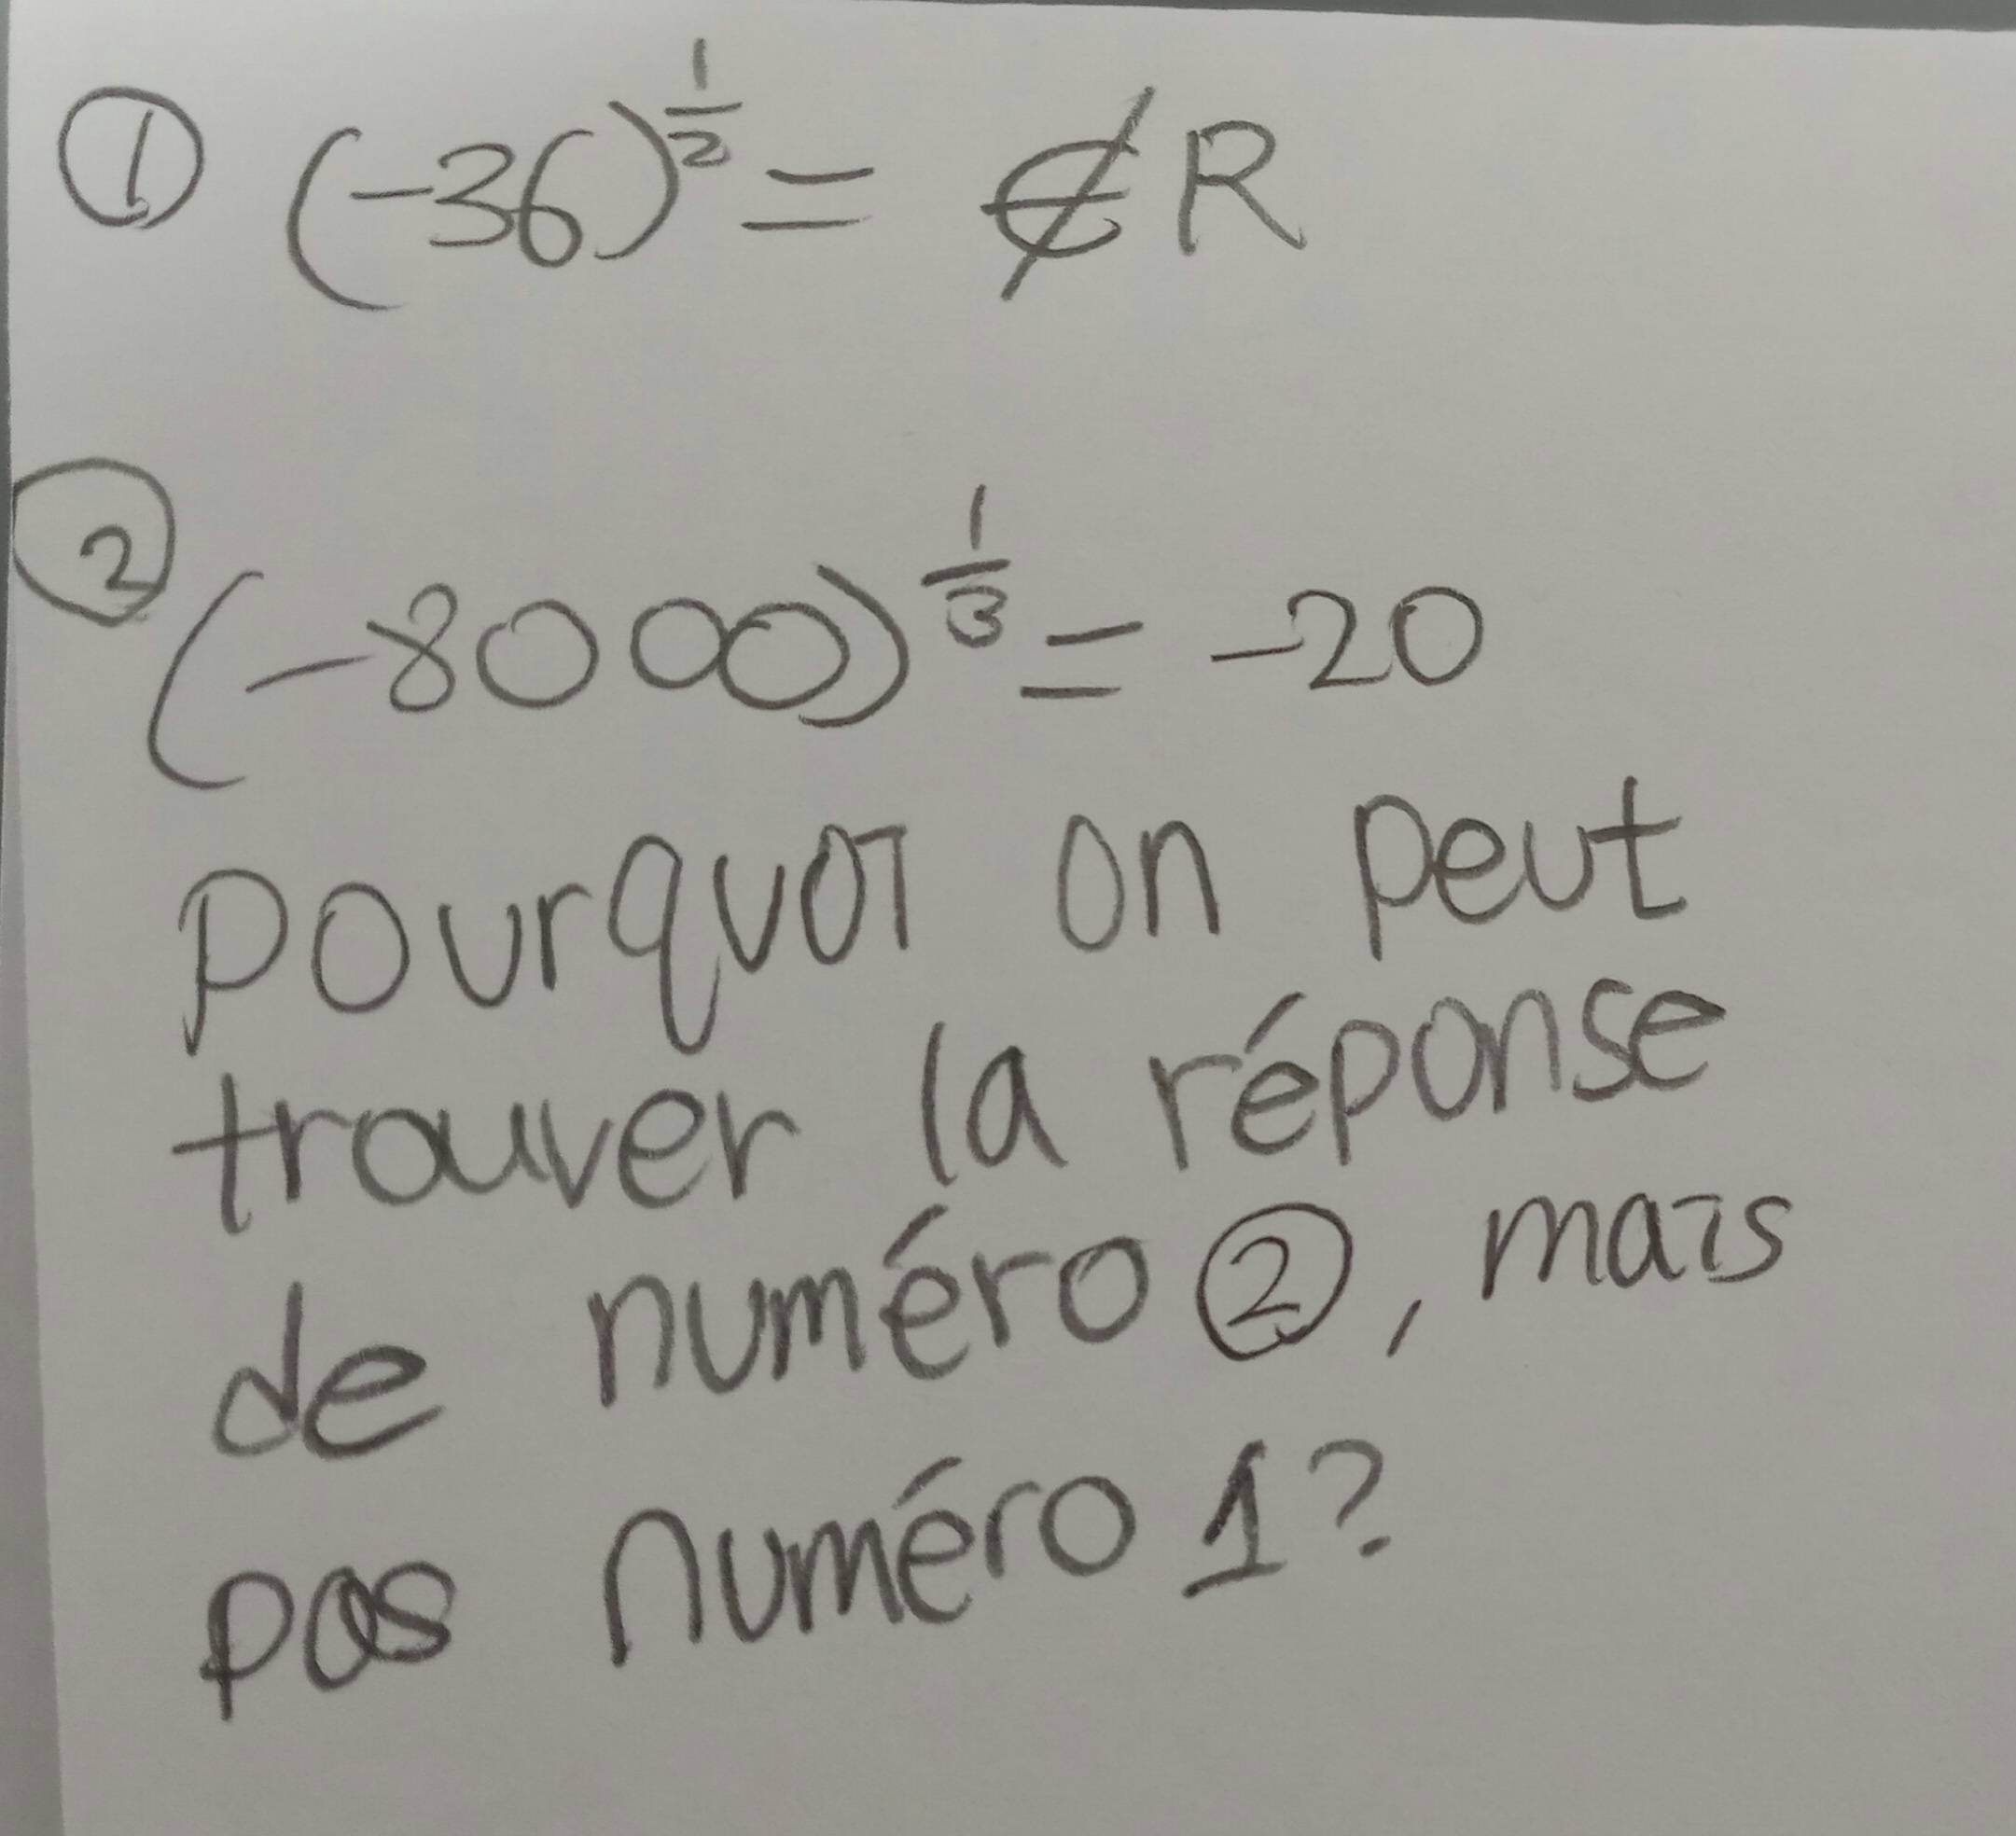 ① (-36)^{1/2} = ∉ R
② (-8000)^{1/3} = -20
pourquoi on peut
trouver la réponse
de numéro ②, mais
pas numéro 1?